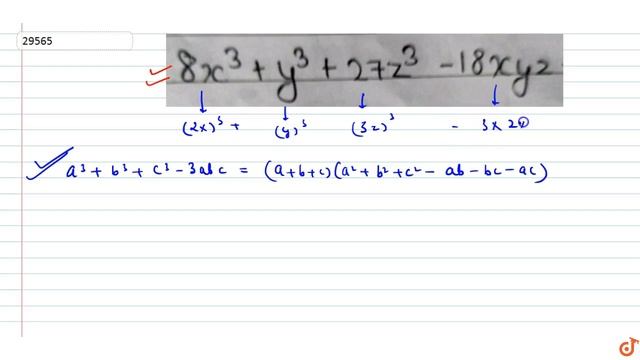 29565
8x³ + y³ + 27z³ - 18xyz
(2x)³ + (y)³ (3z)³ - 3 x 2
a³ + b³ + c³ - 3abc = (a+b+c)(a² + b² + c² - ab - bc - ac)